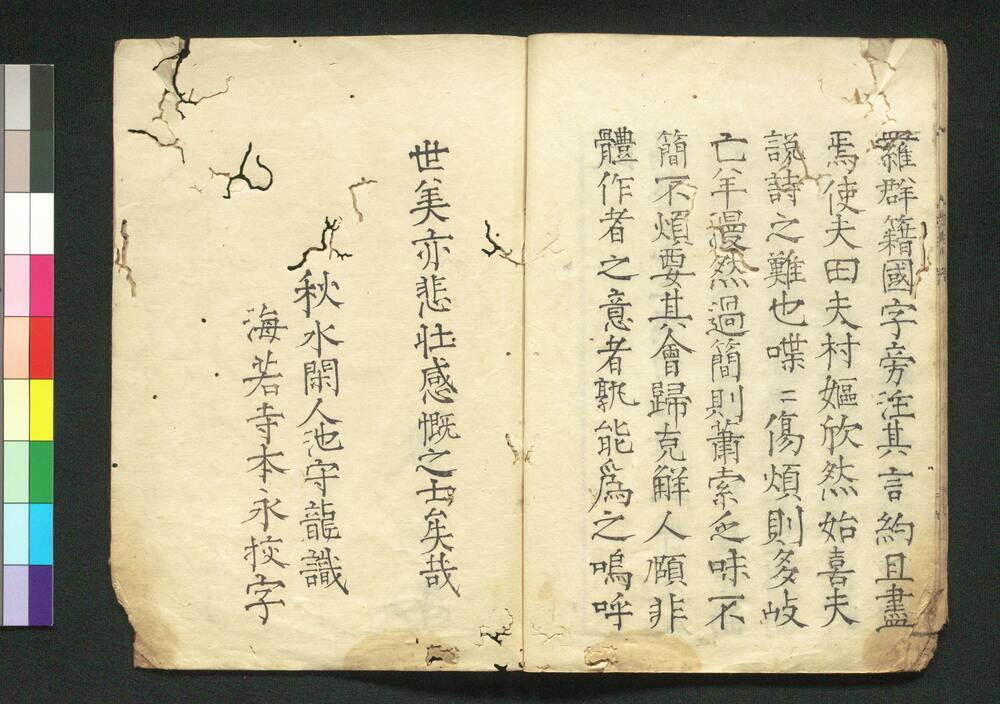 羅群籍國字旁注其言約且盡
焉使夫田夫村嫗欣然始喜夫
說詩之難也喋〻傷煩則多岐
亡羊漫然過簡則蕭索乏味不
簡不煩要其會歸克解人頤非
體作者之意者孰能爲之嗚呼
世美亦悲壮感慨之士矣哉
秋水閑人池守龍識
海若寺本永挍字